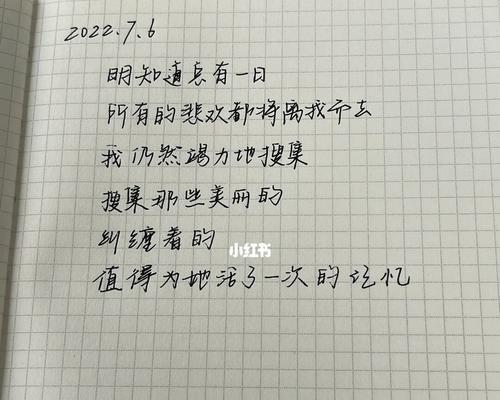 2022.7.6
明知道总有一日
所有的悲欢都将离我而去
我仍然竭力地搜集
搜集那些美丽的
纠缠着的
小红书
值得为她活了一次的记忆